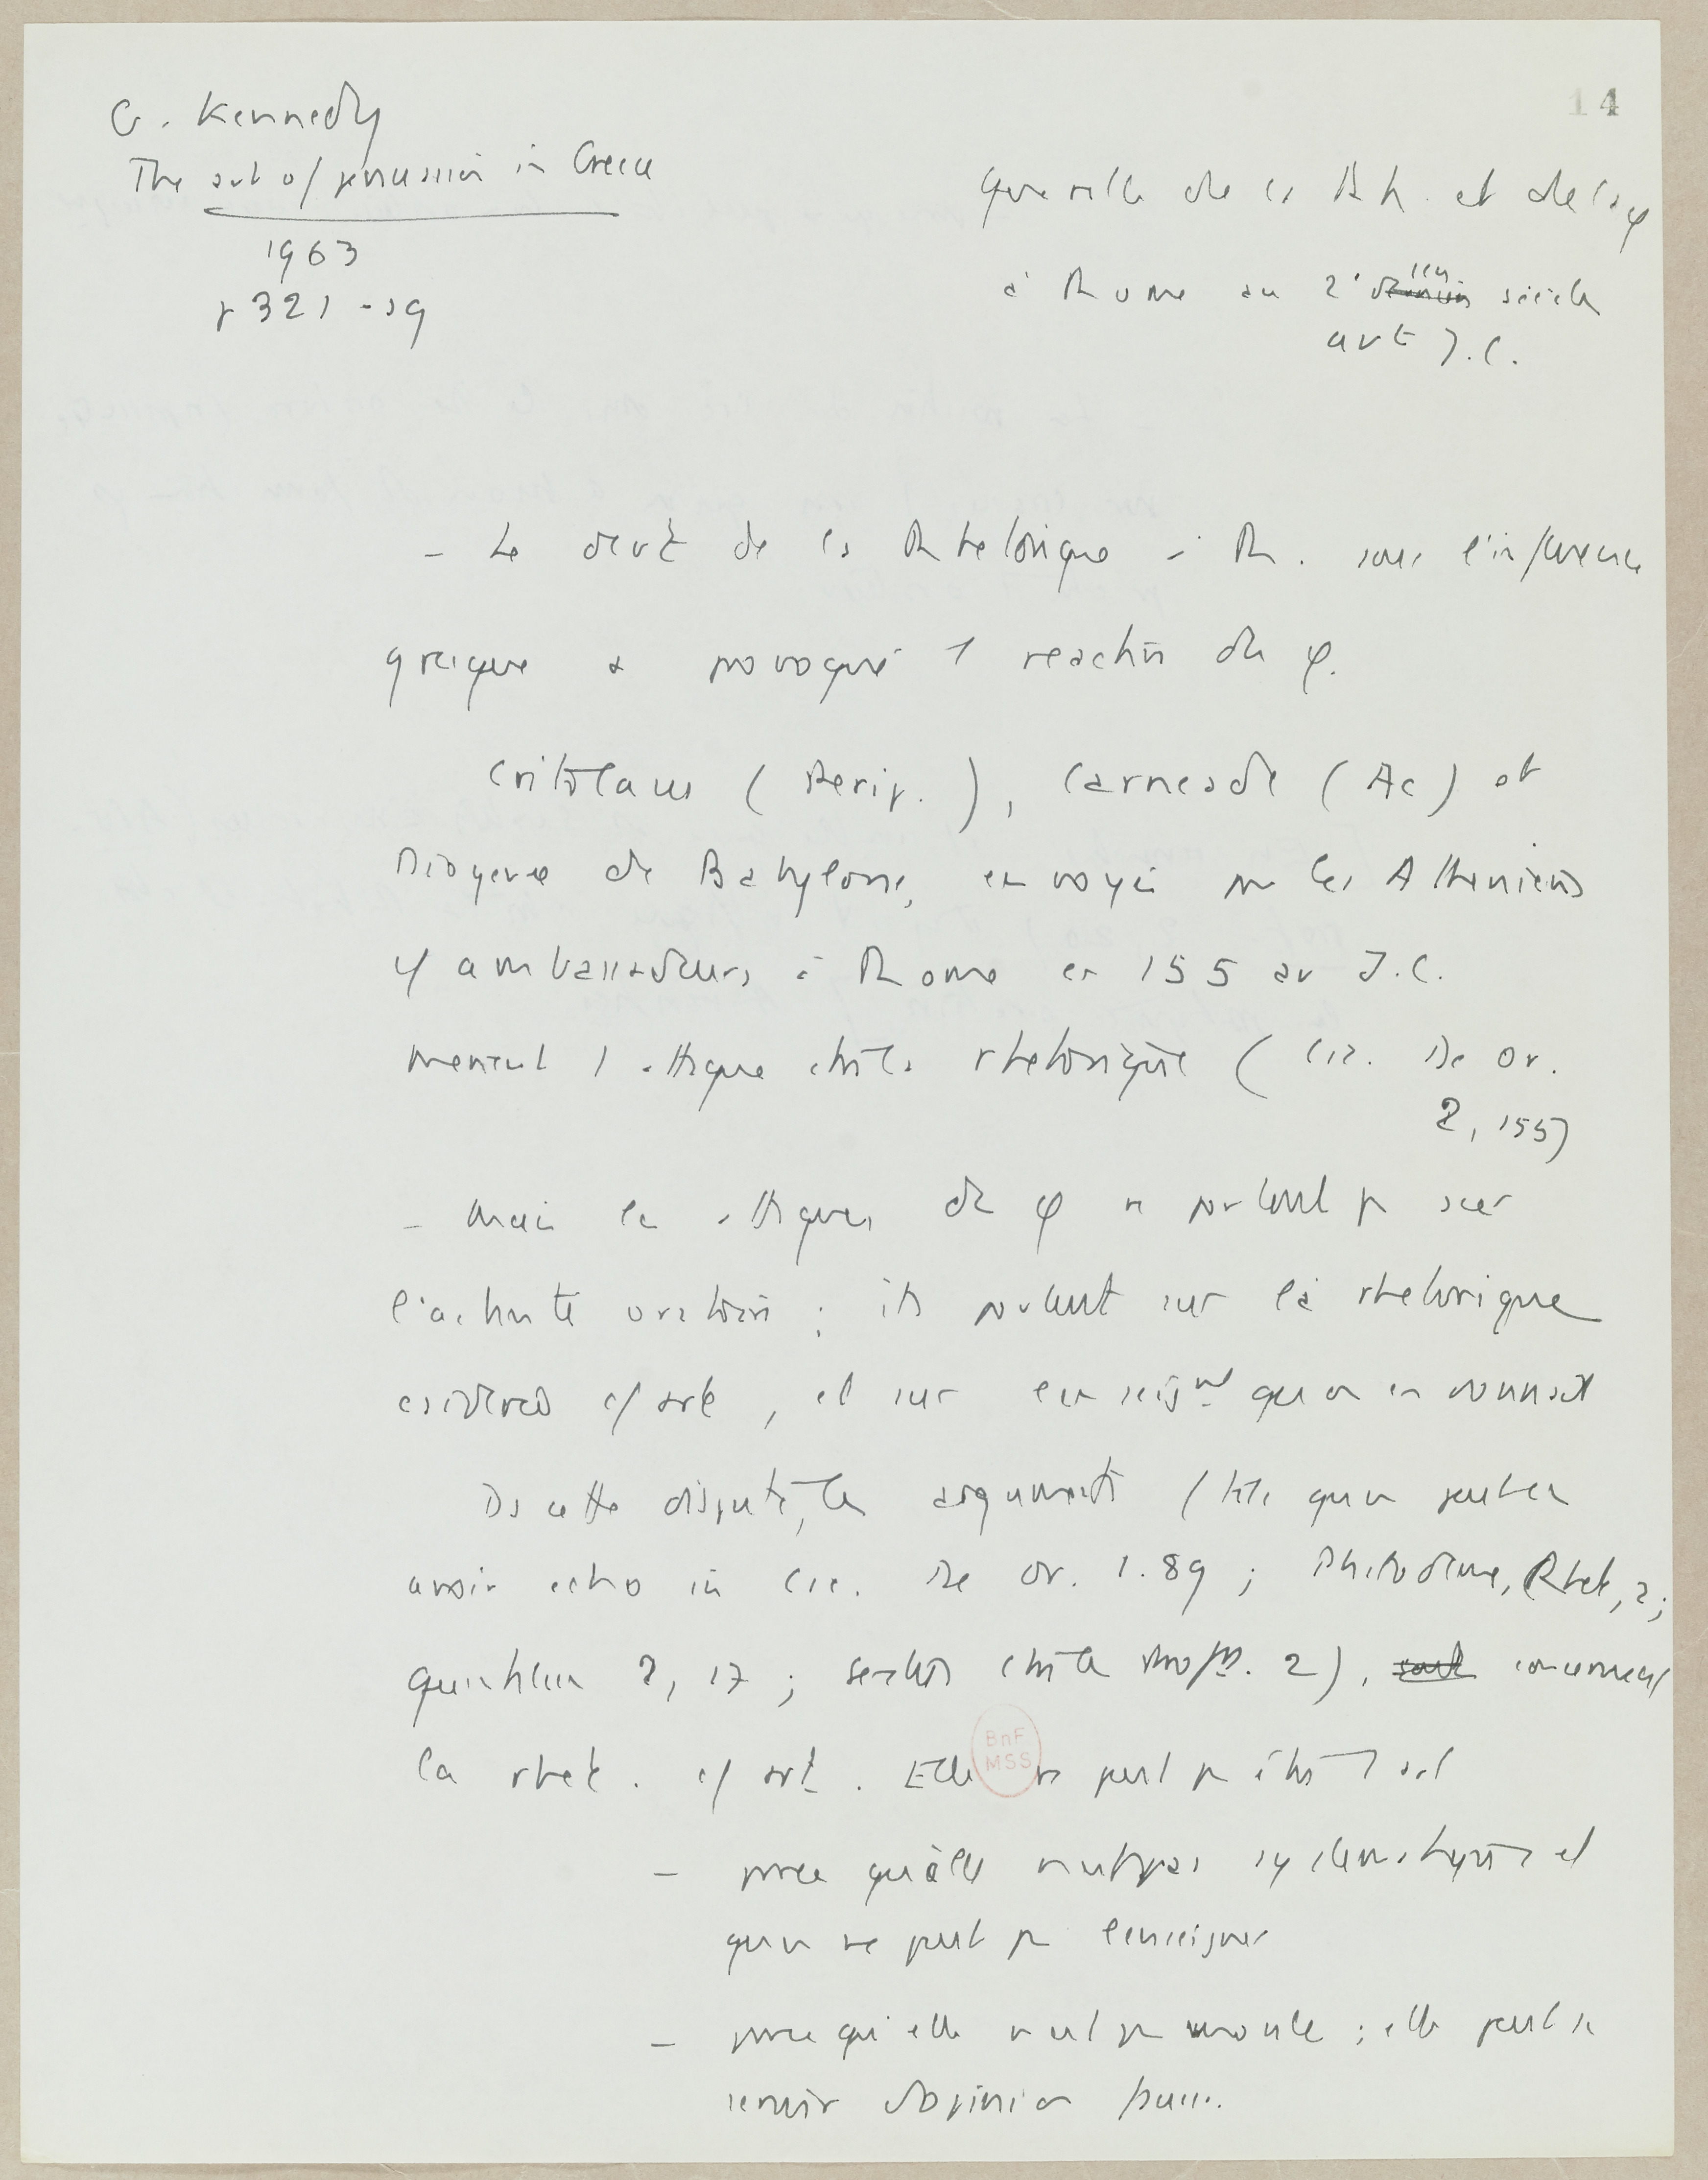 14
G. Kennedy
The art of persuasion in Greece
1963
p 321-29
Querelle de la Rh. et de la φ
à Rome au 2e siècle
avt J.C.
- Le devt de la Rhetorique à R. sous l'influence
grecque a provoqué 1 reaction de φ.
Critolaus (Perip.), Carneade (Ac) et
Diogene de Babylone, envoyés par les Atheniens
c/ ambassadeurs à Rome en 155 av J.C.
menent 1 attaque contre rhetorique (Cic. De Or.
2, 155)
- Mais les attaques de φ ne portent p sur
l'activité oratoire ; ils portent sur la rhetorique
considérée c/ art, et sur enseignt qu'on en donnait
Ds cette dispute, les arguments (tels qu'on peut en
avoir echo in Cic. De Or. 1.89 ; Philodeme, Rhet, 2 ;
Quintilien 2, 17 ; Sextus contre Prof. 2), concernent
la rhet. c/ art. Elle ne peut p être 1 art
- parce qu'elle n'est pas systematique et
qu'on ne peut p l'enseigner
- parce qu'elle n'est p morale ; elle peut se
servir d'opinion fausses.
BnF
MSS